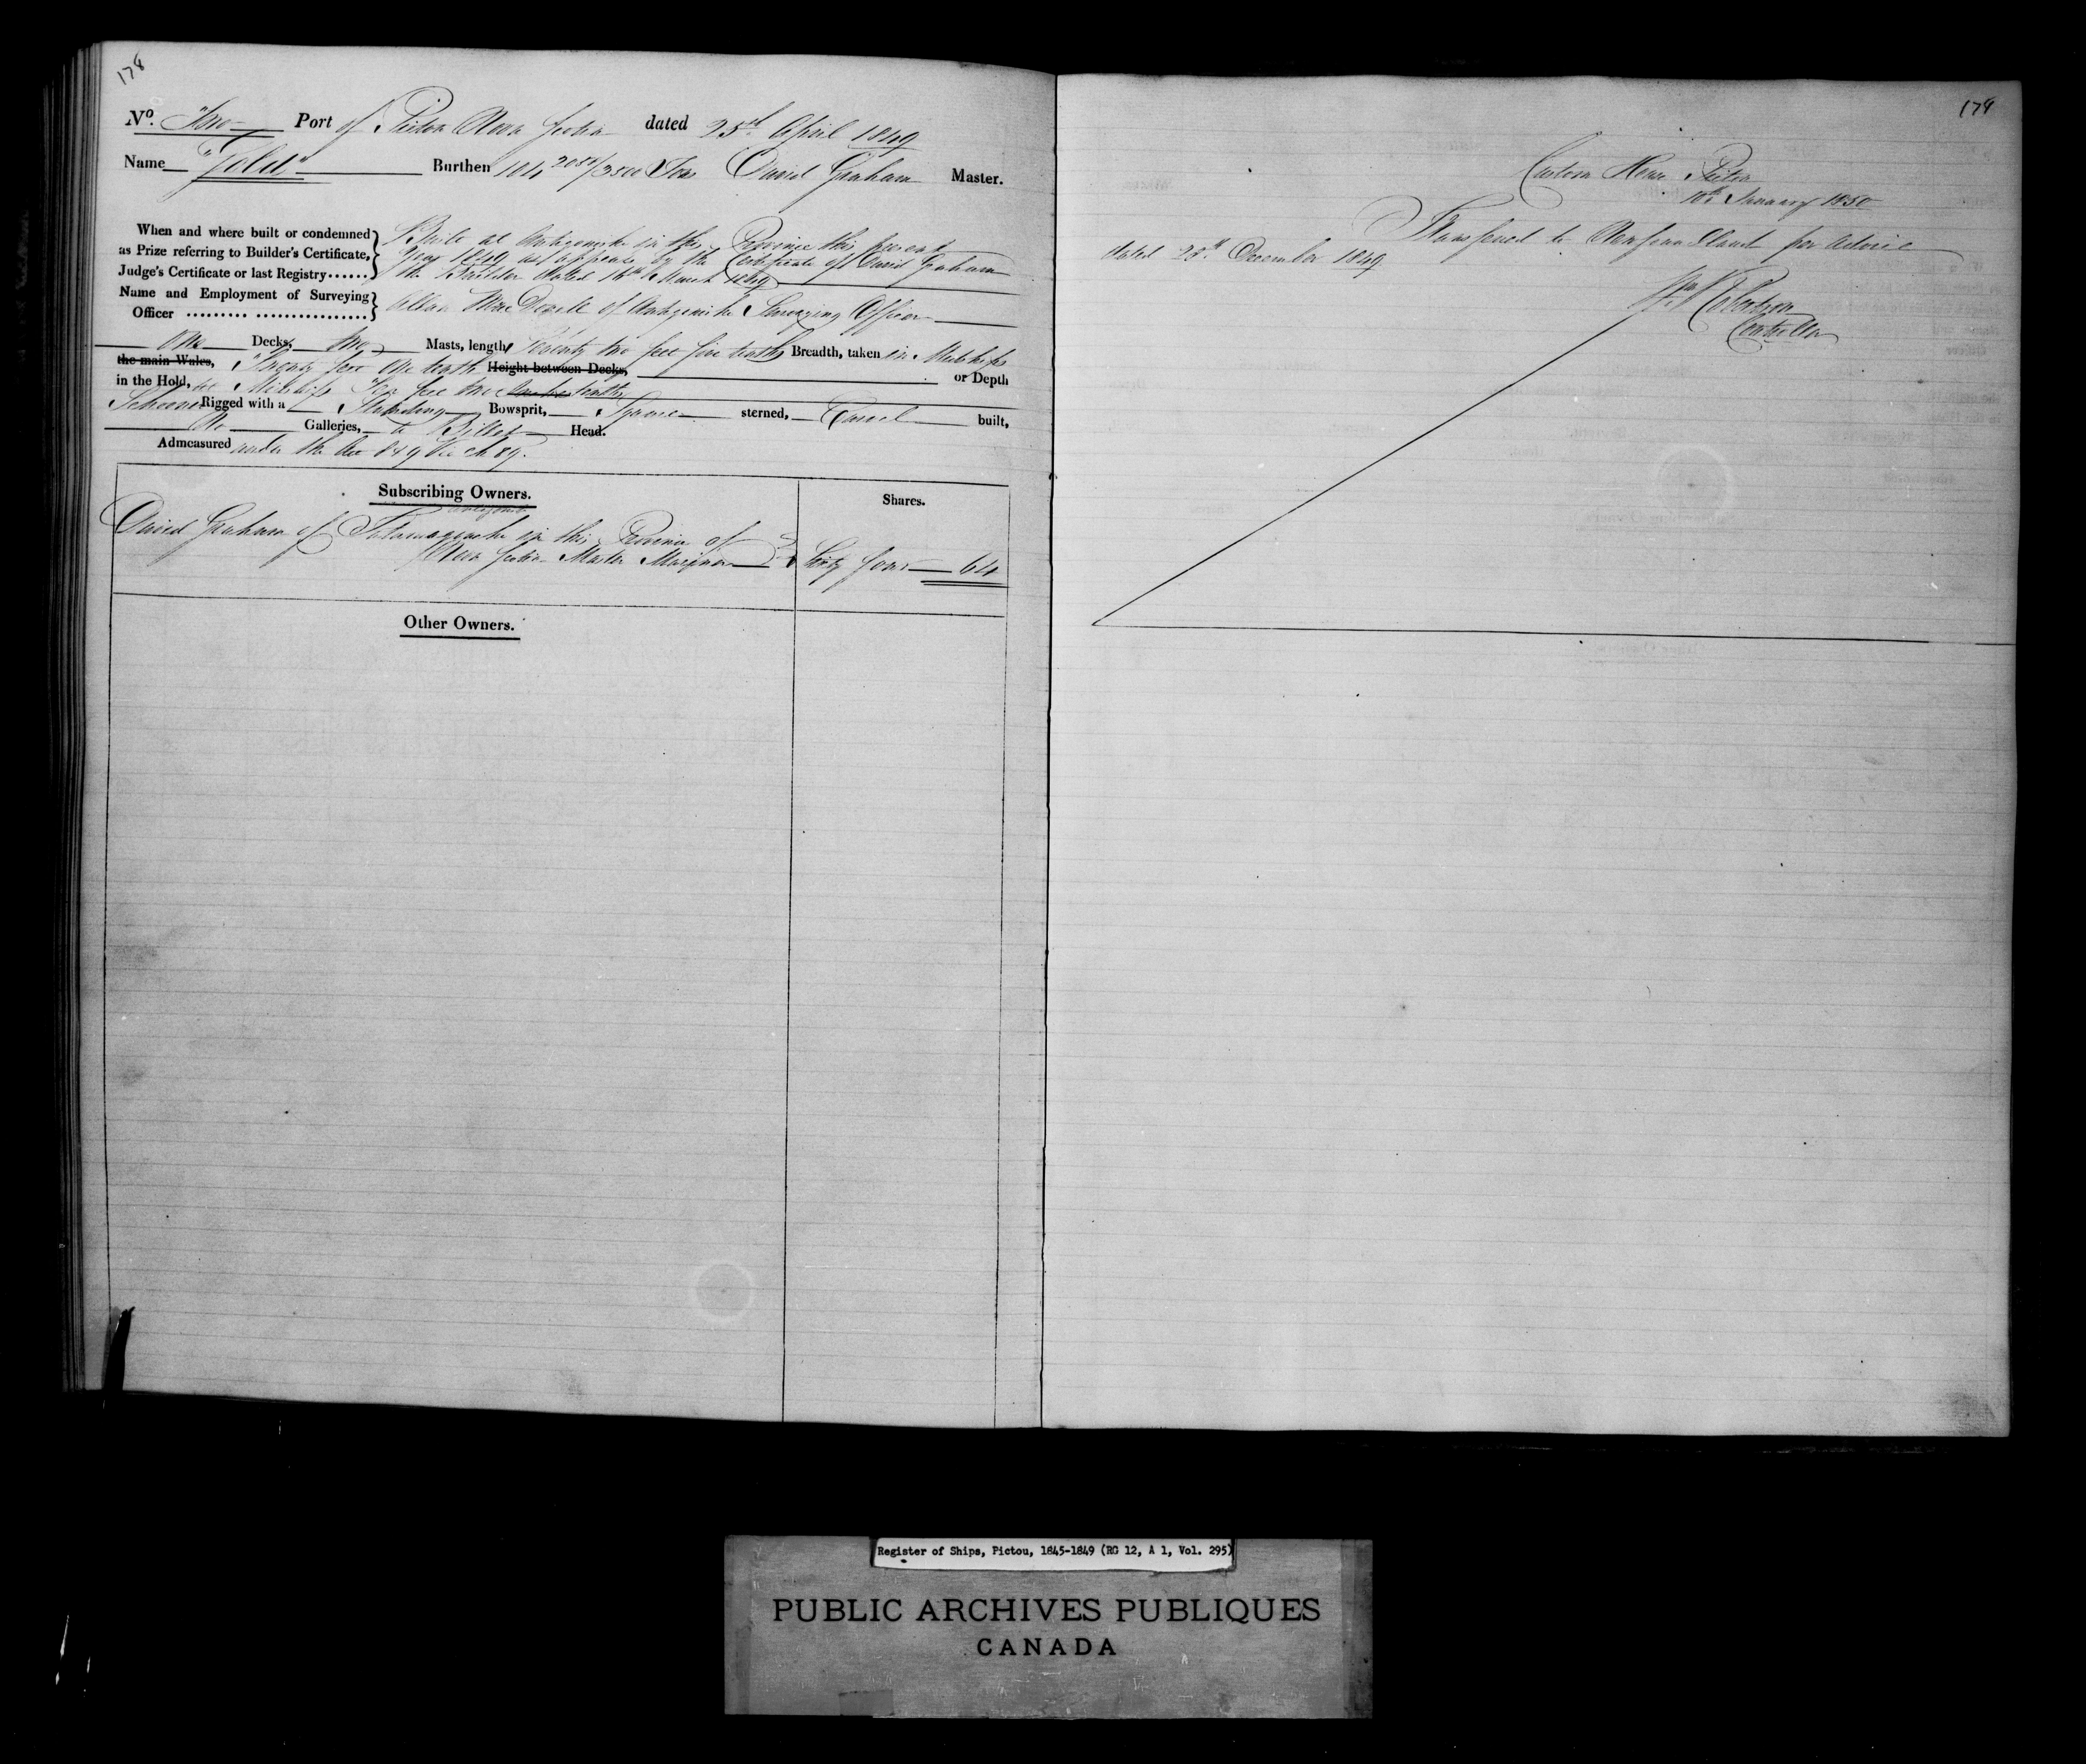 178
No. Two Port of Pictou Nova Scotia dated 25th April 1849
Name "Gold" Burthen 104 2084/3500 Tons David Graham Master.
When and where built or condemned as Prize referring to Builder's Certificate, Judge's Certificate or last Registry......
Built at Antigonishe in this Province this present
Year 1849 as appears by the Certificate of David Graham
the Builder dated 16th March 1849
Name and Employment of Surveying Officer ......... ................
Allan MacDonald of Antigonishe Surveying Officer
One Decks, Two Masts, length Seventy two feet five tenths Breadth, taken in Midships
the main Wales, Twenty feet One tenth Height between Decks, or Depth
in the Hold, at Midships Ten feet two tenths
Schooner Rigged with a Standing Bowsprit, Square sterned, Carvel built,
No Galleries, a Billet Head.
Admeasured under the Act 8 & 9 Vic Ch 89.
Subscribing Owners.
Shares.
David Graham of in this Province of
Nova Scotia Master Mariner Sixty four 64
Other Owners.
179
Custom House Pictou
10th January 1850
Transferred to Newfoundland per Advice
dated 28th December 1849
Controller
Register of Ships, Pictou, 1845-1849 (RG 12, A 1, Vol. 295)
PUBLIC ARCHIVES PUBLIQUES
CANADA